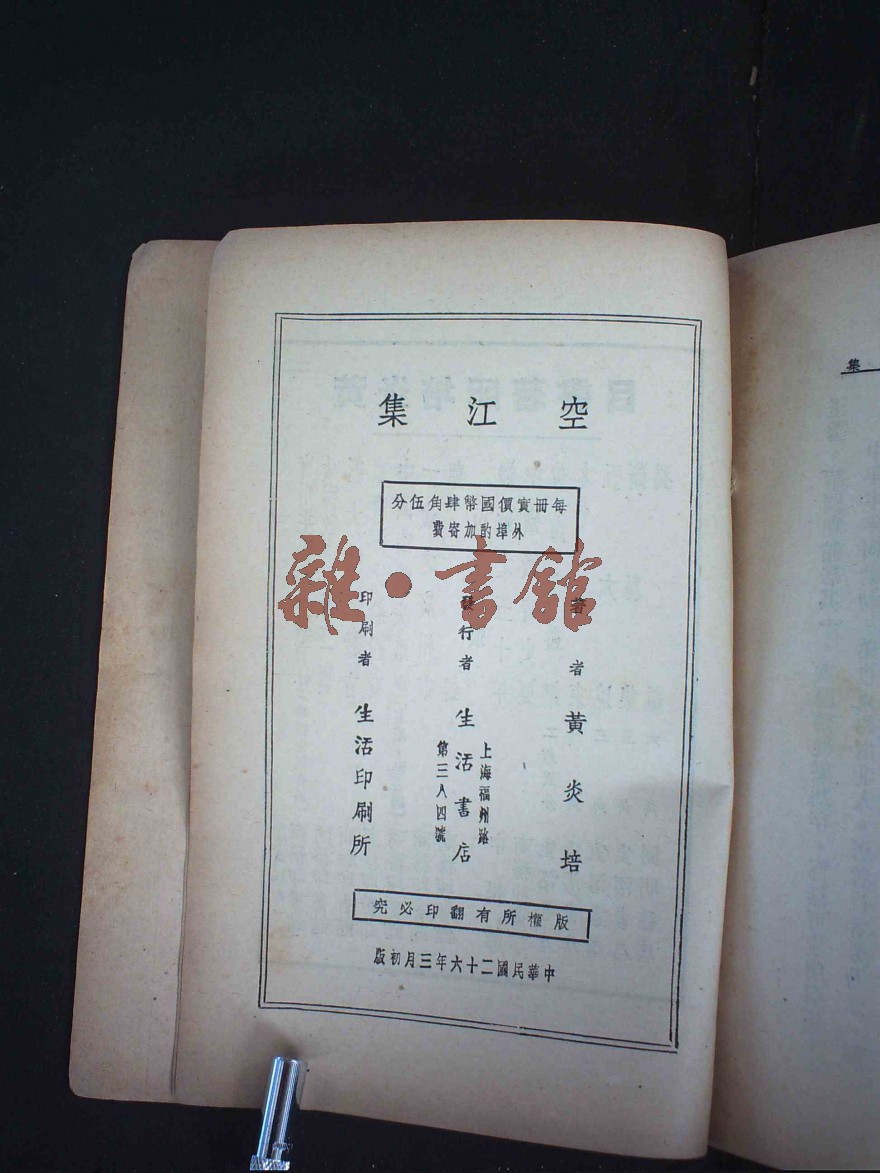 空江集
每冊實價國幣肆角伍分
外埠酌加寄費
著者 黃炎培
發行者 生活書店
上海福州路
第三八四號
印刷者 生活印刷所
版權所有翻印必究
中華民國二十六年三月初版
雜·書館
集